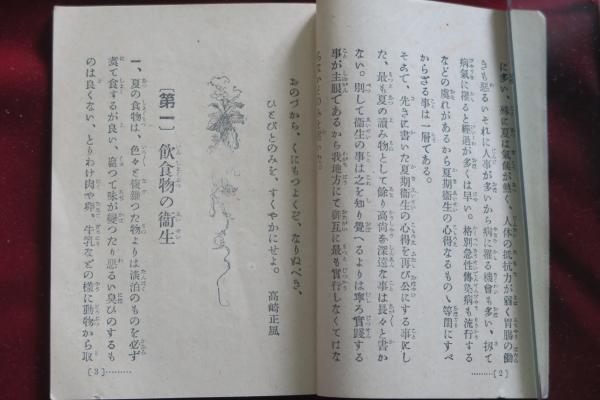 に多い、殊に夏は氣候が熱く、人体の抵抗力が弱く胃腸の働
きも惡るいそれに人事が多いから病に罹る機會も多い、扨て
病氣に罹ると經過が多くは早い。格別急性傳染病も流行する
などの虞れがあるから夏期衞生の心得なるもの丶等閑にすべ
からざる事は一層である。
そゑて、先きに書いた夏期衞生の心得を再び公にする事にし
た、最も夏の讀み物として餘り高尙な深遠な事は長々と書か
ない。別して衞生の事は之を知り覺へるよりは寧ろ實踐する
事が主眼であるから我地方にて御互に最も實行しなくてはな
〔2〕
おのづから、くにもつよくぞ、なりぬべき、
ひとびとのみを、すくやかにせよ。 高崎正風
〔第一〕飮食物の衞生
一、夏の食物は、色々と複雜つた物よりは淡泊のものを必ず
煑て食するが良い、腐つて味が變つたり惡るい臭ひのするも
のは良くない、とりわけ肉や卵、牛乳などの樣に動物から取
〔3〕